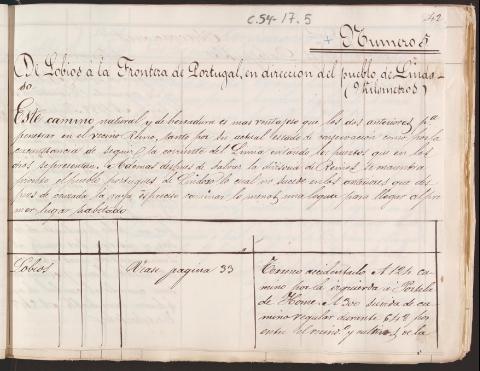 C.54-17.5
42
Numero 5
De Lobios á la Frontera de Portugal, en dirección del pueblo de Lindo-
so
(9 Kilometros)
Este camino natural y de herradura es mas ventajoso que los dos anteriores pª
penetrar en el vecino Reino, tanto por su actual estado de conservacion como por la
circunstancia de seguir la corriente del Lima evitando el puertos que en los
dos se presentan. Ademas despues de salvar la divisoria de Reinos se encuentra
pronto el pueblo portugues de Lindoso lo cual no sucede en los anteriores que des-
pues de cruzada la raya es preciso caminar lo menos una legua para llegar al pri-
mer lugar habitado
Lobios
Vease pagina 33
Terreno accidentado A 124 ca-
mino por la izquierda á Portela
de Home. A 300 senda de ca-
mino regular durante 642 por
entre el mismo y de la